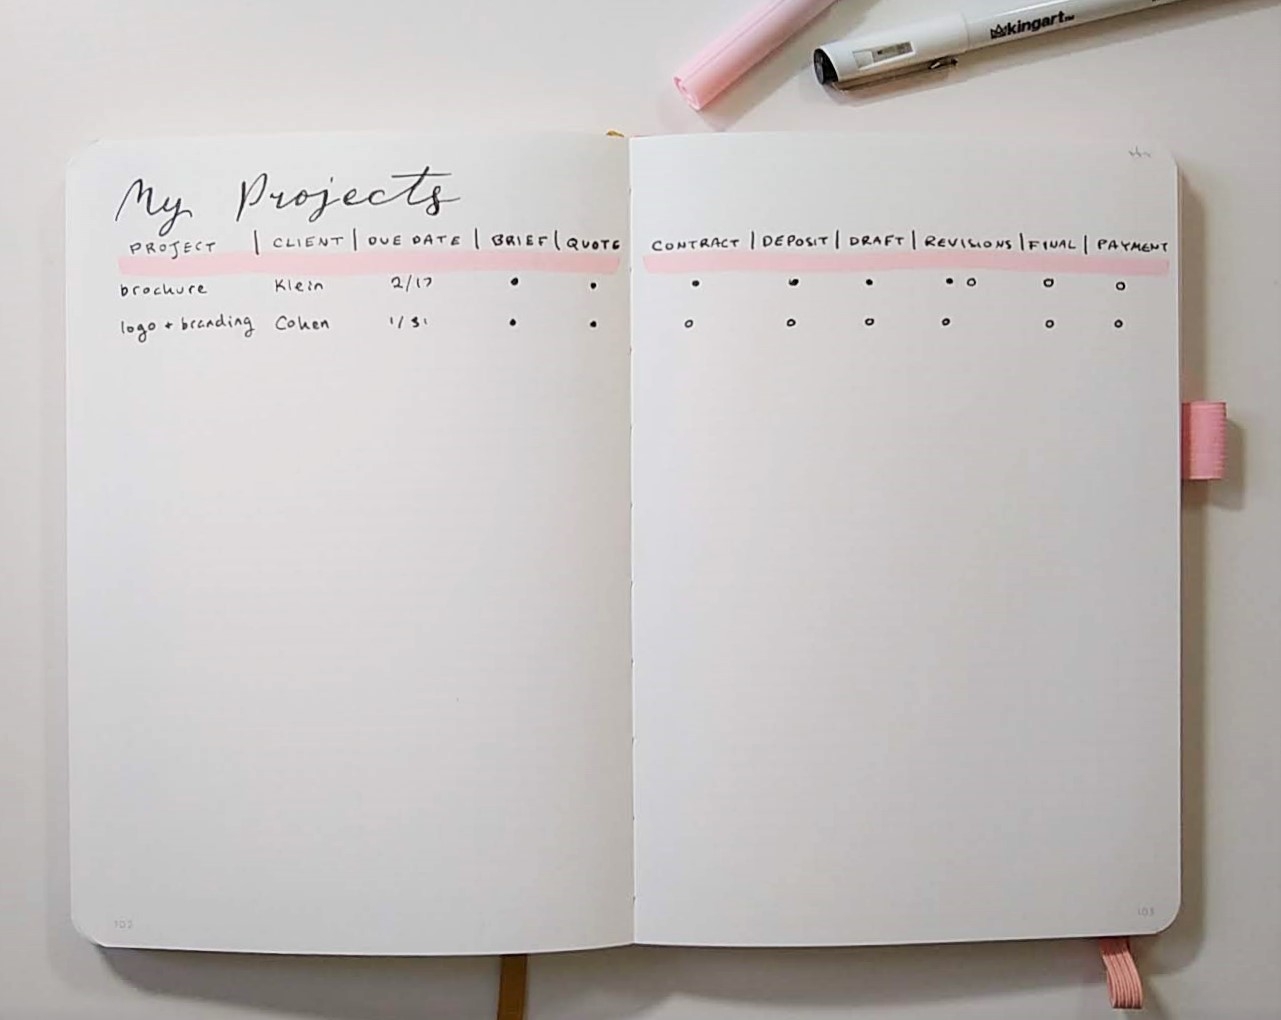 kingart
My Projects
PROJECT | CLIENT | DUE DATE | BRIEF | QUOTE CONTRACT | DEPOSIT | DRAFT | REVISIONS | FINAL | PAYMENT
brochure Klein 2/17 • • • • • • o o o
logo + branding Cohen 1/31 • • o o o o o o
102 103